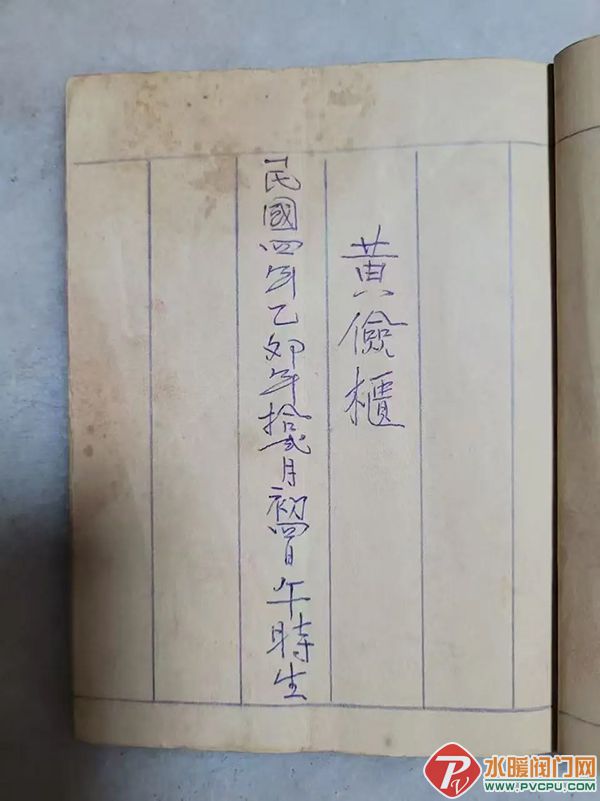 黄儉櫃
民國四年乙夘年拾弍月初四日午時生
水暖阀门网
WWW.PVCPU.COM